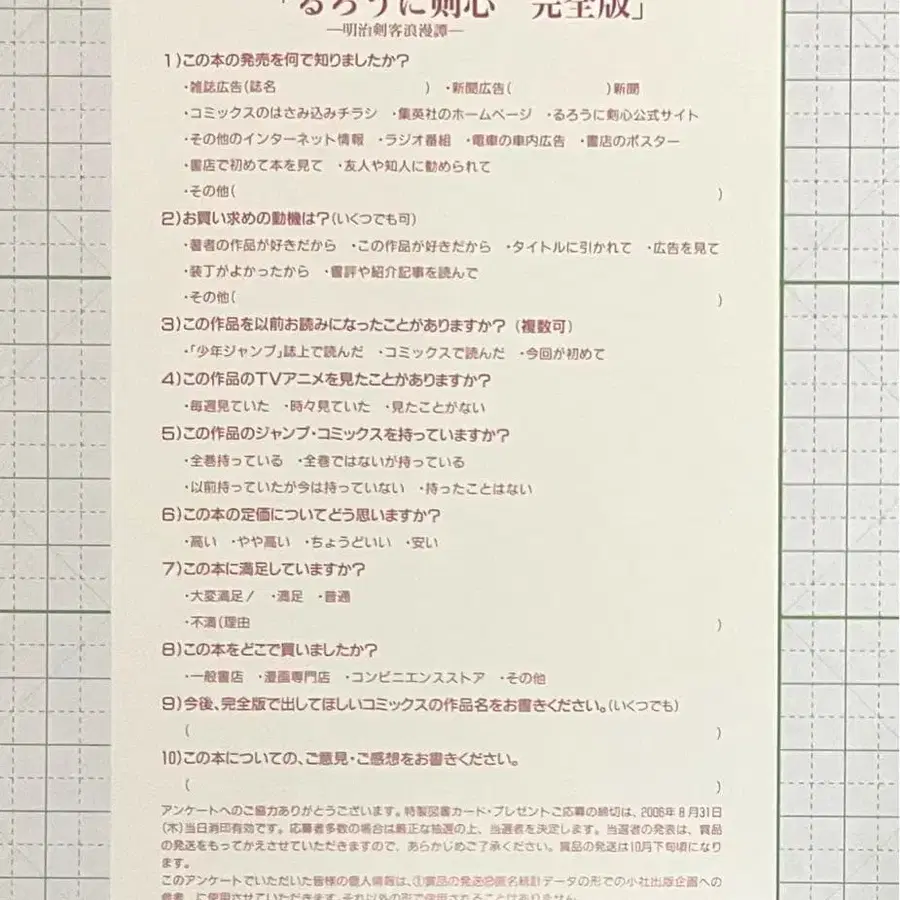 「るろうに剣心　完全版」
―明治剣客浪漫譚―
1)この本の発売を何で知りましたか?
・雑誌広告(誌名　　　　　　　　)　・新聞広告(　　　　　　)新聞
・コミックスのはさみ込みチラシ　・集英社のホームページ　・るろうに剣心公式サイト
・その他のインターネット情報　・ラジオ番組　・電車の車内広告　・書店のポスター
・書店で初めて本を見て　・友人や知人に勧められて
・その他(　　　　　　　　)
2)お買い求めの動機は?(いくつでも可)
・著者の作品が好きだから　・この作品が好きだから　・タイトルに引かれて　・広告を見て
・装丁がよかったから　・書評や紹介記事を読んで
・その他(　　　　　　　　)
3)この作品を以前お読みになったことがありますか?(複数可)
・「少年ジャンプ」誌上で読んだ　・コミックスで読んだ　・今回が初めて
4)この作品のTVアニメを見たことがありますか?
・毎週見ていた　・時々見ていた　・見たことがない
5)この作品のジャンプ・コミックスを持っていますか?
・全巻持っている　・全巻ではないが持っている
・以前持っていたが今は持っていない　・持ったことはない
6)この本の定価についてどう思いますか?
・高い　・やや高い　・ちょうどいい　・安い
7)この本に満足していますか?
・大変満足!　・満足　・普通
・不満(理由　　　　　　　　)
8)この本をどこで買いましたか?
・一般書店　・漫画専門店　・コンビニエンスストア　・その他
9)今後、完全版で出してほしいコミックスの作品名をお書きください。(いくつでも)
(　　　　　　　　)
10)この本についての、ご意見・ご感想をお書きください。
(　　　　　　　　)
アンケートへのご協力ありがとうございます。特製図書カード・プレゼントご応募の締切は、2006年8月31日
(木)当日消印有効です。応募者多数の場合は厳正な抽選の上、当選者を決定します。当選者の発表は、賞品
の発送をもってかえさせていただきますので、あらかじめご了承ください。賞品の発送は10月下旬頃になり
ます。
このアンケートでいただいた皆様の個人情報は、①賞品の発送②匿名統計データの形での小社出版企画への
参考、に使用させていただきます。それ以外の形で使用されることはありません。